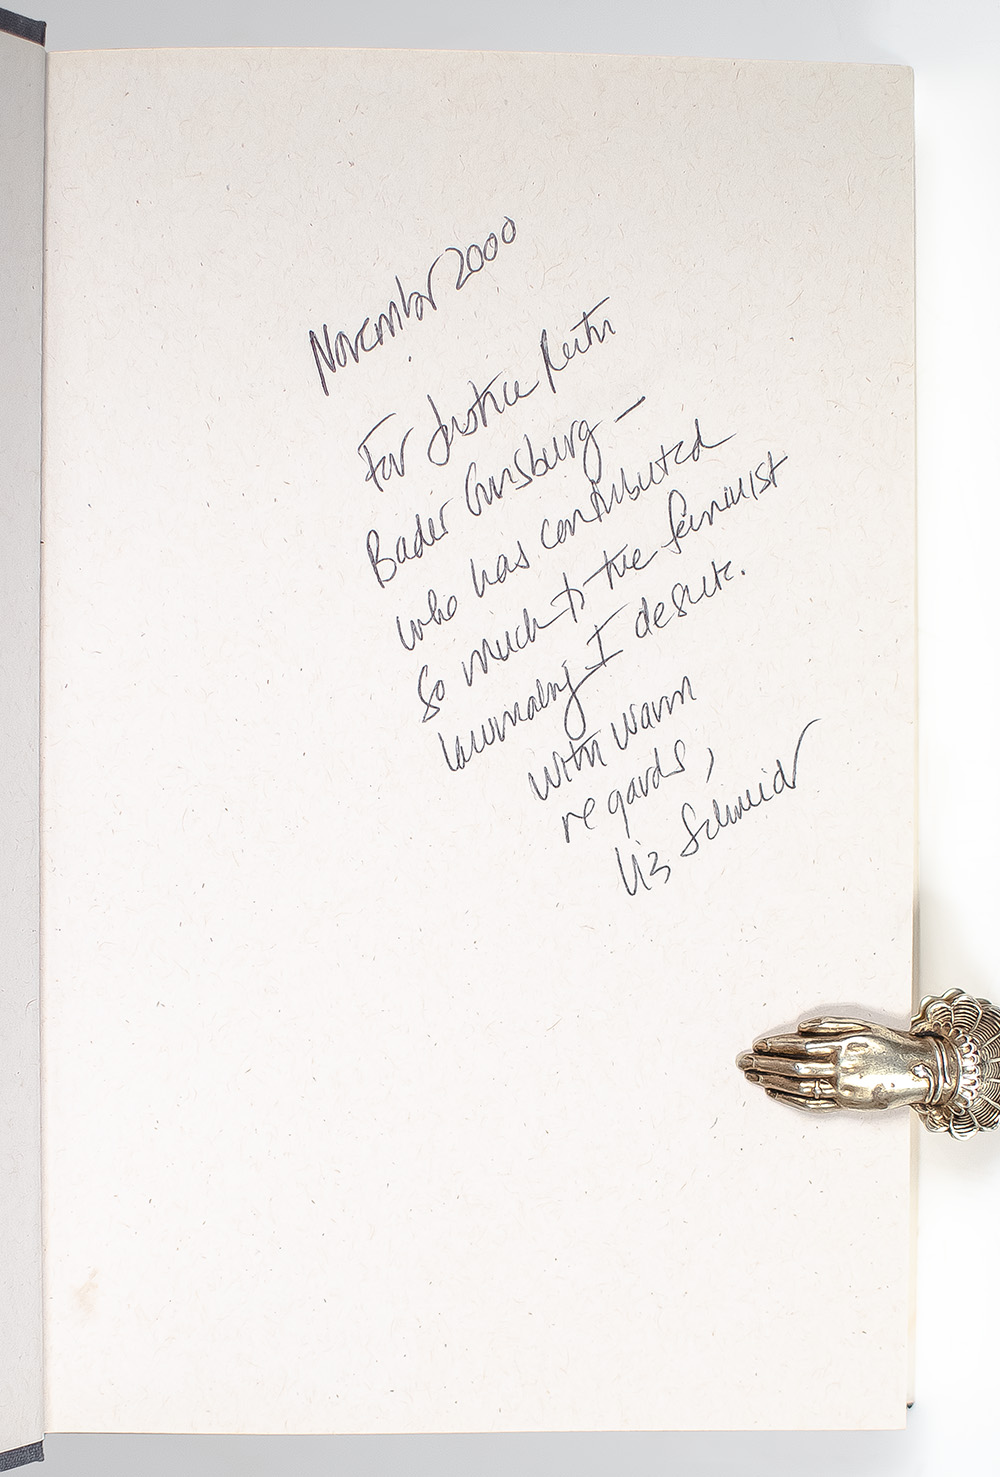 November 2000
For Justice Ruth
Bader Ginsburg —
who has contributed
so much to the feminist
lawmaking I describe.
With warm
regards,
Liz Schneider